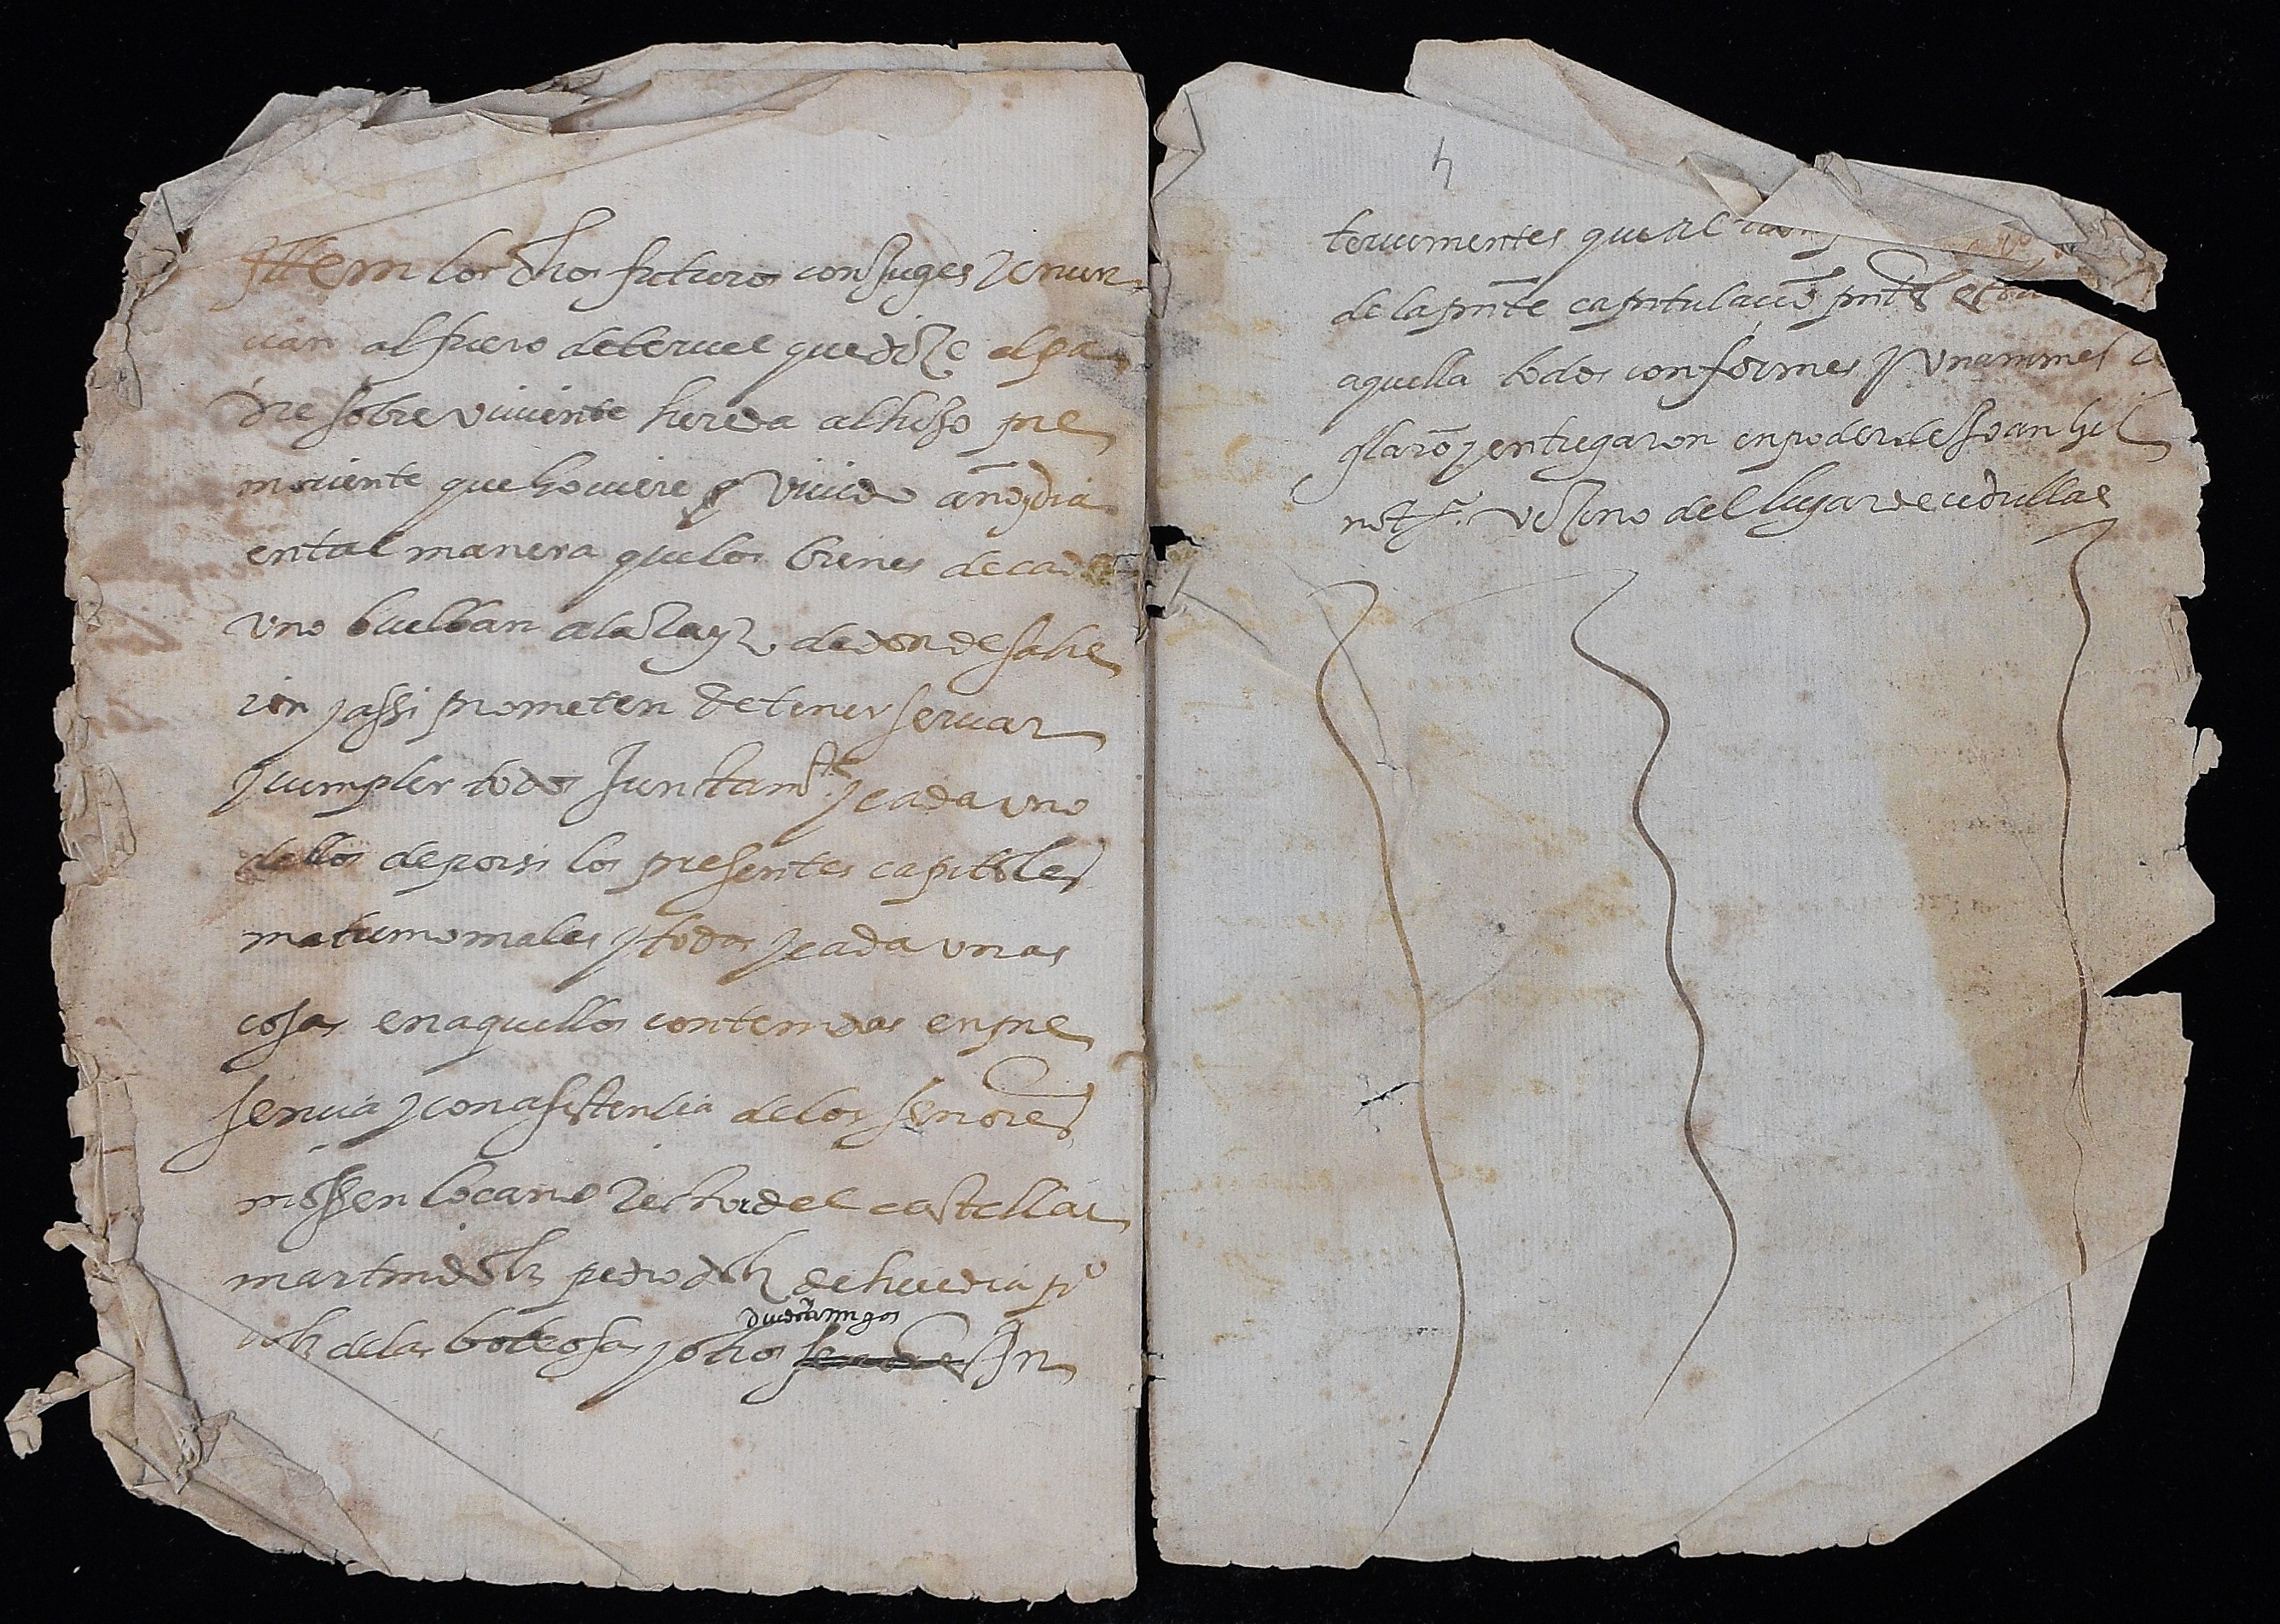 Ittem los dhos futuros conjuges renun
cian al fuero de teruel que dize el pa
dre sobre viviente hereda al hijo pre
moriente que houiere vivido año y dia
en tal manera que los bienes de cada
uno buelban a la rayz de donde salie
ron y assi prometen de tener servar
y cumplir todos juntamte y cada uno
dellos de por si los presentes capitoles
matrimoniales y todas y cada unas
cosas en aquellos contenidas en pre
sencia y con asistencia de los señores
mossen locano rector del castellar
martin dolz pedro dolz de huedia po
dolz de las boteosas y otros in
4
tervinientes que al
de la pnte capitulacio pntes
aquella todos conformes y unanimes
glaro y entregaron en poder de Joan gil
not. vezino del lugar de cedrillas